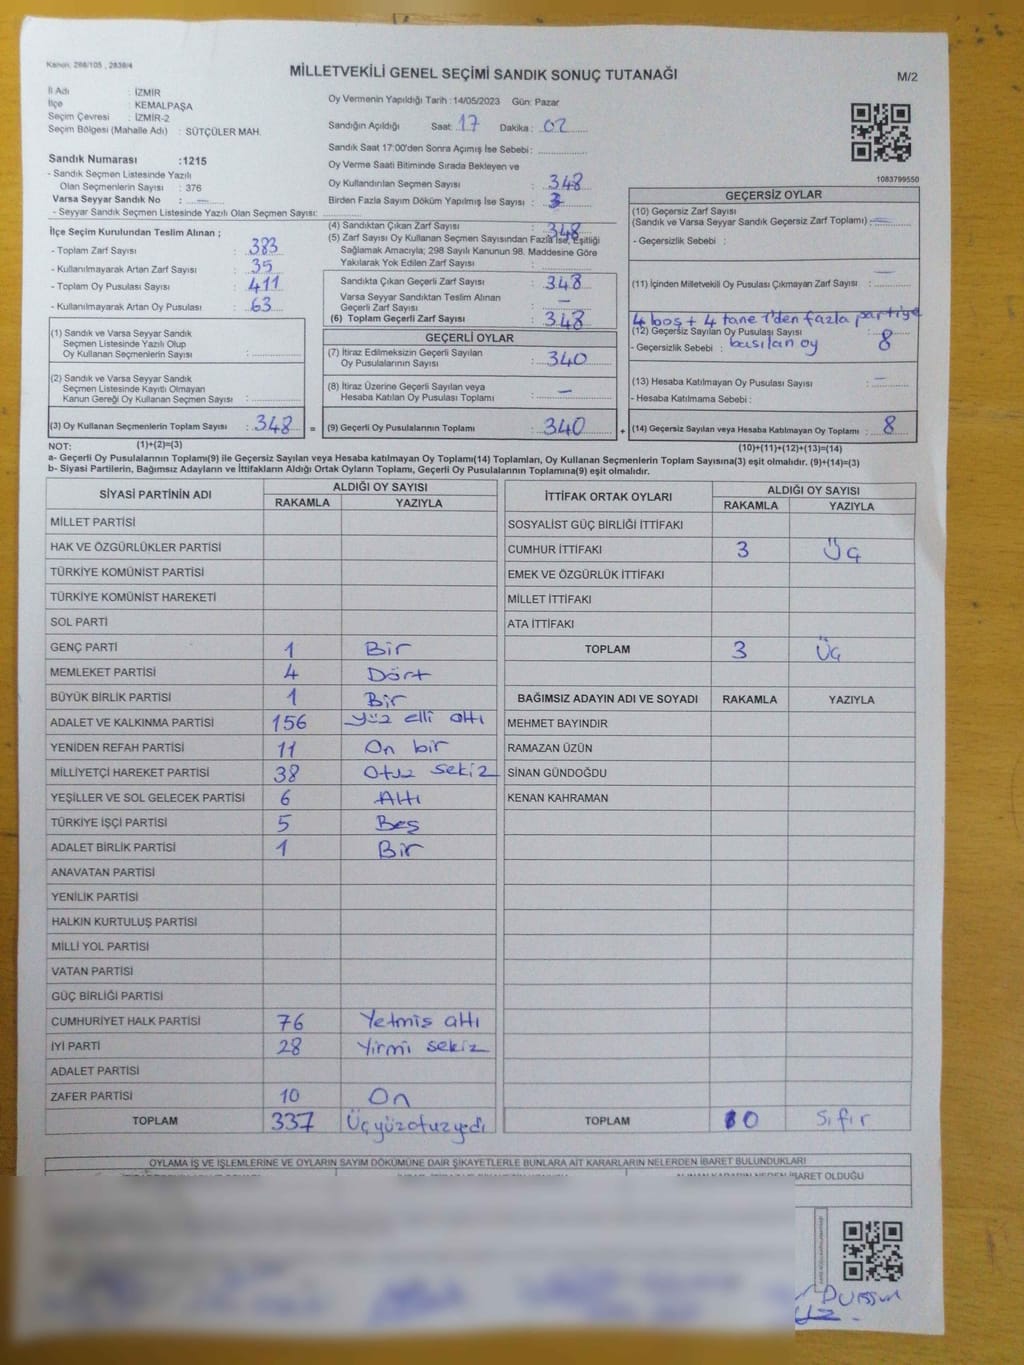 Kanun: 298/105 , 2839/4
MİLLETVEKİLİ GENEL SEÇİMİ SANDIK SONUÇ TUTANAĞI
M/2
İl Adı : İZMİR
İlçe : KEMALPAŞA
Seçim Çevresi : İZMİR-2
Seçim Bölgesi (Mahalle Adı) : SÜTÇÜLER MAH.
Oy Vermenin Yapıldığı Tarih : 14/05/2023 Gün: Pazar
Sandığın Açıldığı Saat: 17 Dakika : 02
Sandık Saat 17:00'den Sonra Açımış İse Sebebi :
Oy Verme Saati Bitiminde Sırada Bekleyen ve
Oy Kullandırılan Seçmen Sayısı : 348
Birden Fazla Sayım Döküm Yapılmış İse Sayısı : 3
1083799550
Sandık Numarası :1215
- Sandık Seçmen Listesinde Yazılı
Olan Seçmenlerin Sayısı : 376
Varsa Seyyar Sandık No : —
- Seyyar Sandık Seçmen Listesinde Yazılı Olan Seçmen Sayısı:
İlçe Seçim Kurulundan Teslim Alınan ;
- Toplam Zarf Sayısı : 383
- Kullanılmayarak Artan Zarf Sayısı : 35
- Toplam Oy Pusulası Sayısı : 411
- Kullanılmayarak Artan Oy Pusulası : 63
(1) Sandık ve Varsa Seyyar Sandık
Seçmen Listesinde Yazılı Olup
Oy Kullanan Seçmenlerin Sayısı :
(2) Sandık ve Varsa Seyyar Sandık
Seçmen Listesinde Kayıtlı Olmayan
Kanun Gereği Oy Kullanan Seçmen Sayısı :
(3) Oy Kullanan Seçmenlerin Toplam Sayısı : 348 =
(4) Sandıktan Çıkan Zarf Sayısı : 348
(5) Zarf Sayısı Oy Kullanan Seçmen Sayısından Fazla İse, Eşitliği
Sağlamak Amacıyla; 298 Sayılı Kanunun 98. Maddesine Göre
Yakılarak Yok Edilen Zarf Sayısı :
Sandıkta Çıkan Geçerli Zarf Sayısı : 348
Varsa Seyyar Sandıktan Teslim Alınan
Geçerli Zarf Sayısı : —
(6) Toplam Geçerli Zarf Sayısı : 348
GEÇERLİ OYLAR
(7) İtiraz Edilmeksizin Geçerli Sayılan
Oy Pusulalarının Sayısı : 340
(8) İtiraz Üzerine Geçerli Sayılan veya
Hesaba Katılan Oy Pusulası Toplamı : —
(9) Geçerli Oy Pusulalarının Toplamı : 340 +
GEÇERSİZ OYLAR
(10) Geçersiz Zarf Sayısı
(Sandık ve Varsa Seyyar Sandık Geçersiz Zarf Toplamı) : —
- Geçersizlik Sebebi :
—
(11) İçinden Milletvekili Oy Pusulası Çıkmayan Zarf Sayısı :
4 boş + 4 tane 1'den fazla partiye
(12) Geçersiz Sayılan Oy Pusulası Sayısı : 8
- Geçersizlik Sebebi : basılan oy
(13) Hesaba Katılmayan Oy Pusulası Sayısı : —
- Hesaba Katılmama Sebebi :
(14) Geçersiz Sayılan veya Hesaba Katılmayan Oy Toplamı : 8
NOT: (1)+(2)=(3) (10)+(11)+(12)+(13)=(14)
a- Geçerli Oy Pusulasının Toplamı(9) ile Geçersiz Sayılan veya Hesaba katılmayan Oy Toplamı(14) Toplamları, Oy Kullanan Seçmenlerin Toplam Sayısına(3) eşit olmalıdır. (9)+(14)=(3)
b- Siyasi Partilerin, Bağımsız Adayların ve İttifakların Aldığı Ortak Oyların Toplamı, Geçerli Oy Pusulalarının Toplamına(9) eşit olmalıdır.
SİYASİ PARTİNİN ADI ALDIĞI OY SAYISI
RAKAMLA YAZIYLA
MİLLET PARTİSİ
HAK VE ÖZGÜRLÜKLER PARTİSİ
TÜRKİYE KOMÜNİST PARTİSİ
TÜRKİYE KOMÜNİST HAREKETİ
SOL PARTİ
GENÇ PARTİ 1 Bir
MEMLEKET PARTİSİ 4 Dört
BÜYÜK BİRLİK PARTİSİ 1 Bir
ADALET VE KALKINMA PARTİSİ 156 yüz elli altı
YENİDEN REFAH PARTİSİ 11 On bir
MİLLİYETÇİ HAREKET PARTİSİ 38 Otuz sekiz
YEŞİLLER VE SOL GELECEK PARTİSİ 6 Altı
TÜRKİYE İŞÇİ PARTİSİ 5 Beş
ADALET BİRLİK PARTİSİ 1 Bir
ANAVATAN PARTİSİ
YENİLİK PARTİSİ
HALKIN KURTULUŞ PARTİSİ
MİLLİ YOL PARTİSİ
VATAN PARTİSİ
GÜÇ BİRLİĞİ PARTİSİ
CUMHURİYET HALK PARTİSİ 76 Yetmiş altı
İYİ PARTİ 28 Yirmi sekiz
ADALET PARTİSİ
ZAFER PARTİSİ 10 On
TOPLAM 337 Üçyüzotuzyedi
İTTİFAK ORTAK OYLARI ALDIĞI OY SAYISI
RAKAMLA YAZIYLA
SOSYALİST GÜÇ BİRLİĞİ İTTİFAKI
CUMHUR İTTİFAKI 3 Üç
EMEK VE ÖZGÜRLÜK İTTİFAKI
MİLLET İTTİFAKI
ATA İTTİFAKI
TOPLAM 3 Üç
BAĞIMSIZ ADAYIN ADI VE SOYADI RAKAMLA YAZIYLA
MEHMET BAYINDIR
RAMAZAN ÜZÜN
SİNAN GÜNDOĞDU
KENAN KAHRAMAN
TOPLAM 0 Sıfır
OYLAMA İŞ VE İŞLEMLERİNE VE OYLARIN SAYIM DÖKÜMÜNE DAİR ŞİKAYETLERLE BUNLARA AİT KARARLARIN NELERDEN İBARET BULUNDUKLARI
ALINAN KARARIN NEDEN İBARET OLDUĞU
Dursun